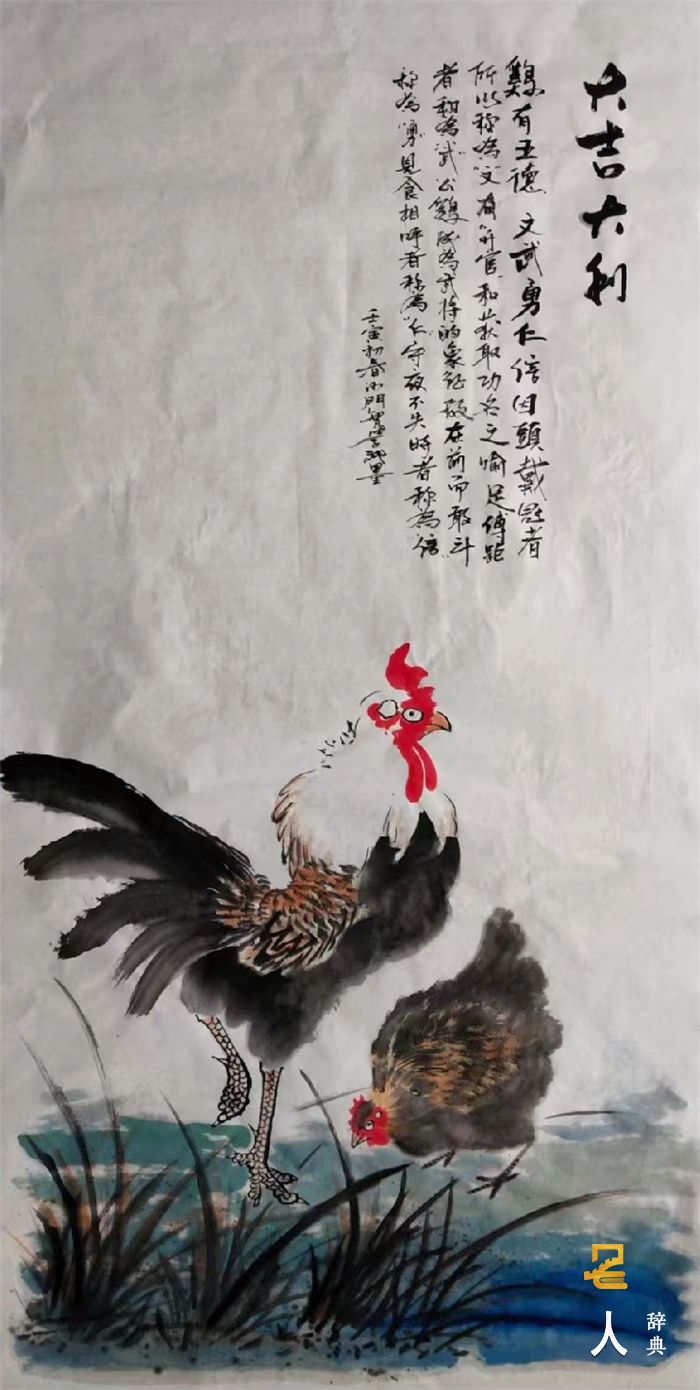 大吉大利
鷄有五德、文武勇仁信因頭戴冠者
所以称為“文”有“升官”和获取功名之喻足傅距
者称為“武”公鷄成為武将的象征敵在前而敢斗
称為“勇”見食相呼者称為“仁”守夜不失時者称為“信”
壬寅初春
墨
名人
辞典